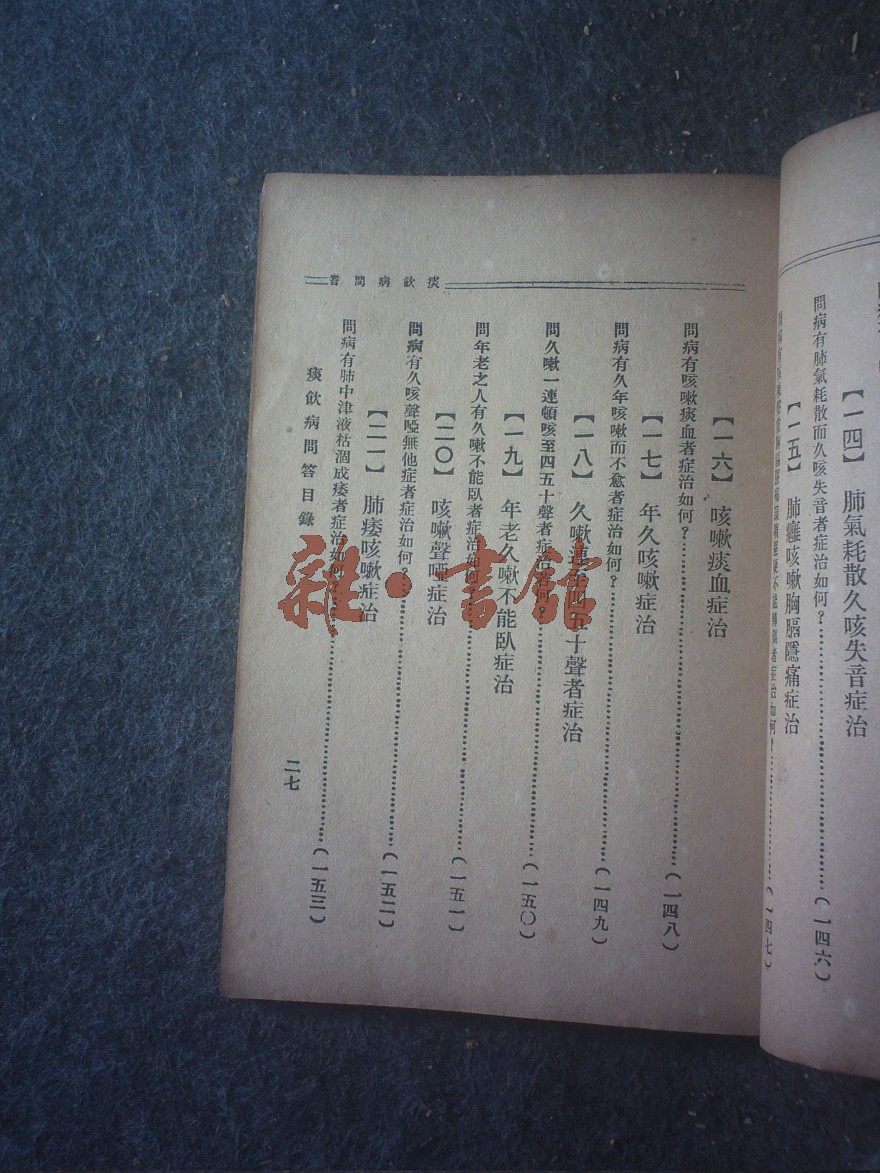 【一四】 肺氣耗散久咳失音症治
問病有肺氣耗散而久咳失音者症治如何？……(一四六)
【一五】 肺癰咳嗽胸膈隱痛症治
者症治如何？……(一四七)
痰飲病問答
【一六】 咳嗽痰血症治
問病有咳嗽痰血者症治如何？……(一四八)
【一七】 年久咳嗽症治
問病有久年咳嗽而不愈者症治如何？……(一四九)
【一八】 久嗽連至四五十聲者症治
問久嗽一連頓咳至四五十聲者症治若何？……(一五〇)
【一九】 年老久嗽不能臥症治
問年老之人有久嗽不能臥者症治如何？……(一五一)
【二〇】 咳嗽聲啞症治
問病有久咳聲啞無他症者症治如何？……(一五二)
【二一】 肺痿咳嗽症治
問病有肺中津液枯涸成痿者症治如何？……(一五三)
痰飲病問答目錄
二七
雜·書館